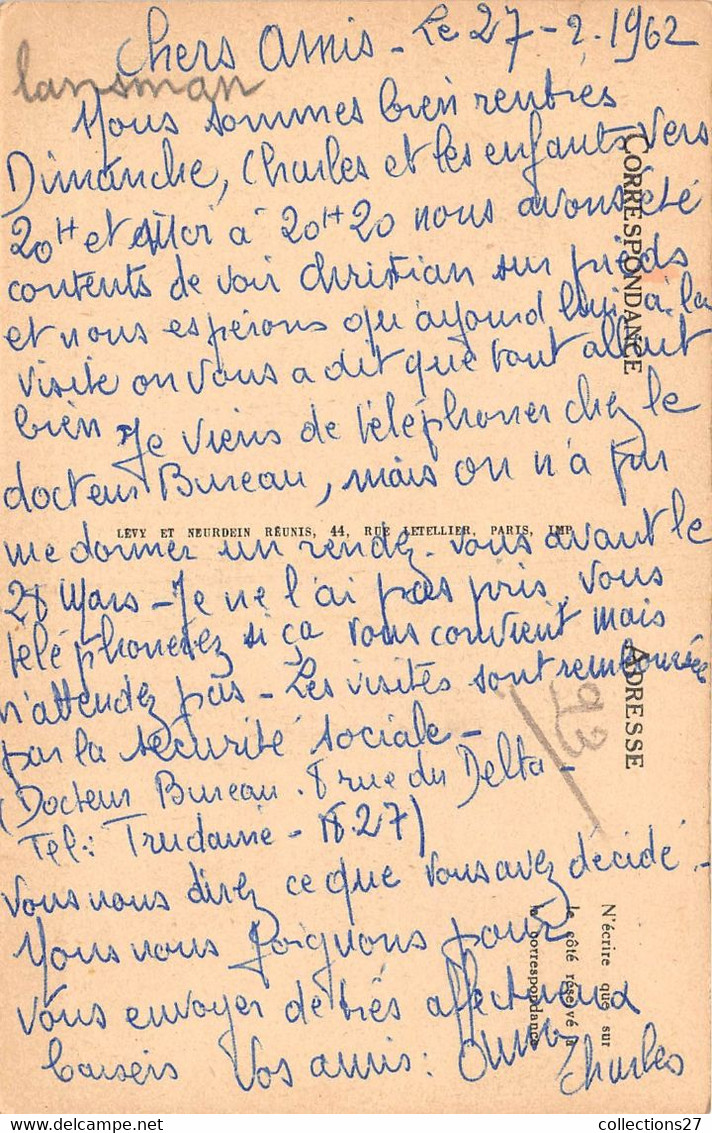 Chers Amis - Le 27-2-1962
lansman
Nous sommes bien rentrés
Dimanche, Charles et les enfants vers
20H et Moi à 20H20 nous avons été
contents de voir Christian sur pieds
et nous espérons qu'aujourd'hui à la
visite on vous a dit que tout allait
bien Je viens de téléphoner chez le
docteur Bureau, mais on n'a pu
me donner un rendez-vous avant le
28 Mars - Je ne l'ai pas pris, vous
téléphonerez si ça vous convient mais
n'attendez pas - Les visites sont remboursées
par la sécurité sociale -
(Docteur Bureau. 8 rue du Delta -
Tel: Trudaine - 18.27)
Vous nous direz ce que vous avez décidé -
Nous nous joignons pour
vous envoyer de très affectueux
baisers Vos amis :
Charles
CORRESPONDANCE
ADRESSE
93
LÉVY ET NEURDEIN RÉUNIS, 44, RUE LETELLIER, PARIS, IMP.
N'écrire que sur
le côté réservé à
la correspondance
collections27